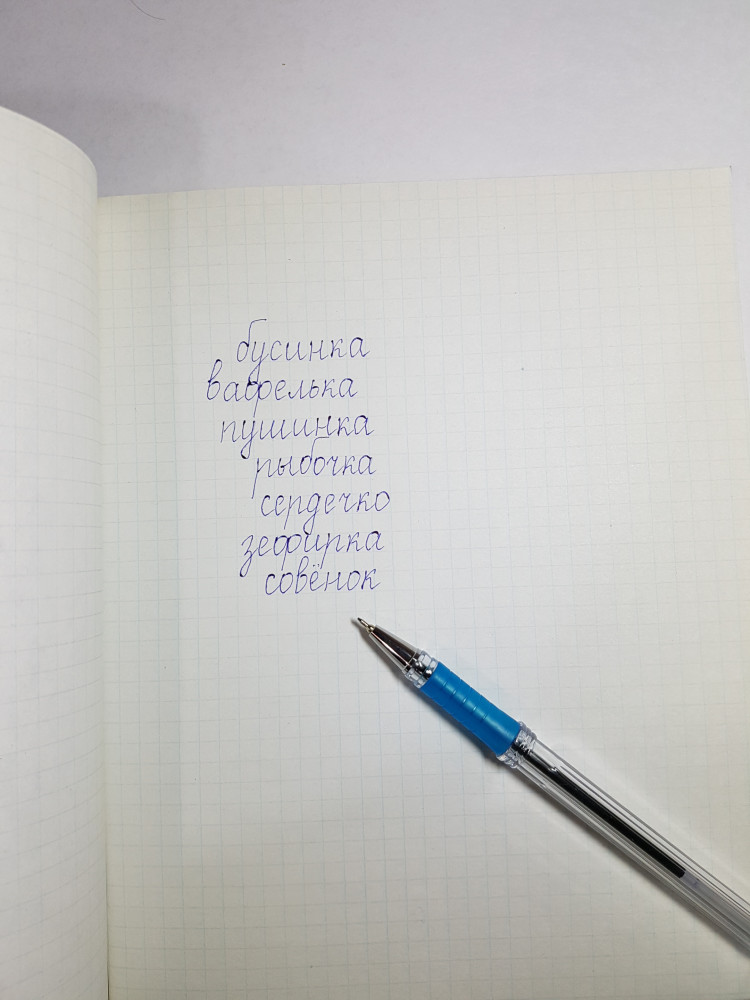 бусинка
вафелька
пушинка
рыбочка
сердечко
зефирка
совёнок